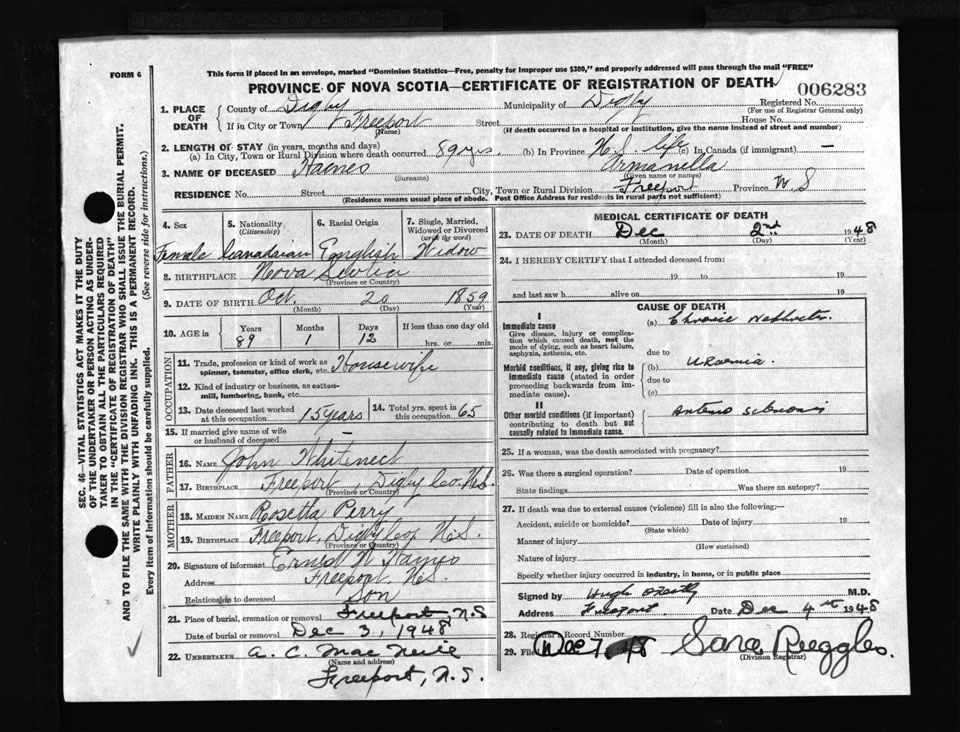 FORM 6
This form if placed in an envelope, marked "Dominion Statistics—Free, penalty for improper use $300," and properly addressed will pass through the mail "FREE"
PROVINCE OF NOVA SCOTIA—CERTIFICATE OF REGISTRATION OF DEATH
006283
1. PLACE OF DEATH
County of Digby Municipality of Digby Registered No.
(For use of Registrar General only)
If in City or Town Freeport Street House No.
(Name) (If death occurred in a hospital or institution, give the name instead of street and number)
2. LENGTH OF STAY (in years, months and days)
(a) In City, Town or Rural Division where death occurred 89 yrs. (b) In Province N.S. life (c) In Canada (if immigrant) —
3. NAME OF DECEASED Haines Armanella
(Surname) (Given name or names)
RESIDENCE No. Street City, Town or Rural Division Freeport Province N.S
(Residence means usual place of abode. Post Office Address for residents in rural parts not sufficient)
4. Sex 5. Nationality (Citizenship) 6. Racial Origin 7. Single, Married, Widowed or Divorced (write the word)
Female Canadian English Widow
8. BIRTHPLACE Nova Scotia
(Province or Country)
9. DATE OF BIRTH Oct. 20 1859
(Month) (Day) (Year)
10. AGE in Years Months Days If less than one day old
89 1 12 hrs. or min.
OCCUPATION
11. Trade, profession or kind of work as spinner, teamster, office clerk, etc. Housewife
12. Kind of industry or business, as cotton-mill, lumbering, bank, etc.
13. Date deceased last worked at this occupation 15 years 14. Total yrs. spent in this occupation 65
15. If married give name of wife or husband of deceased —
FATHER
16. NAME John Whiteneck
17. BIRTHPLACE Freeport, Digby Co. N.S.
(Province or Country)
MOTHER
18. MAIDEN NAME Rosetta Perry
19. BIRTHPLACE Freeport, Digby Co. N.S.
(Province or Country)
20. Signature of informant Ernest W Haines
Address Freeport N.S.
Relationship to deceased Son
21. Place of burial, cremation or removal Freeport, N.S
Date of burial or removal Dec 3, 1948
22. UNDERTAKER A. C. Mac Neile
(Name and address)
Freeport, N.S.
MEDICAL CERTIFICATE OF DEATH
23. DATE OF DEATH Dec 2nd 1948
(Month) (Day) (Year)
24. I HEREBY CERTIFY that I attended deceased from:
19 to 19
and last saw h alive on 19
CAUSE OF DEATH
I
Immediate cause
Give disease, injury or complication which caused death, not the mode of dying, such as heart failure, asphyxia, asthenia, etc.
(a) Chronic Nephritis
due to
Morbid conditions, if any, giving rise to immediate cause (stated in order proceeding backwards from immediate cause).
(b) Uraemia.
due to
(c)
II
Other morbid conditions (if important) contributing to death but not causally related to immediate cause.
25. If a woman, was the death associated with pregnancy?
26. Was there a surgical operation? Date of operation 19
State findings Was there an autopsy?
27. If death was due to external causes (violence) fill in also the following:—
Accident, suicide or homicide? Date of injury 19
(State which)
Manner of injury
(How sustained)
Nature of injury
Specify whether injury occurred in industry, in home, or in public place
Signed by Hugh M.D.
Address Freeport. Date Dec 4th 1948
28. Registrar Record Number
29. Filed Dec 7, 48 Sara Ruggles.
(Division Registrar)
SEC. 46—VITAL STATISTICS ACT MAKES IT THE DUTY
OF THE UNDERTAKER OR PERSON ACTING AS UNDER-
TAKER TO OBTAIN ALL THE PARTICULARS REQUIRED
IN THE "CERTIFICATE OF REGISTRATION OF DEATH"
AND TO FILE THE SAME WITH THE DIVISION REGISTRAR WHO SHALL ISSUE THE BURIAL PERMIT.
WRITE PLAINLY WITH UNFADING INK. THIS IS A PERMANENT RECORD.
Every item of information should be carefully supplied. (See reverse side for instructions.)